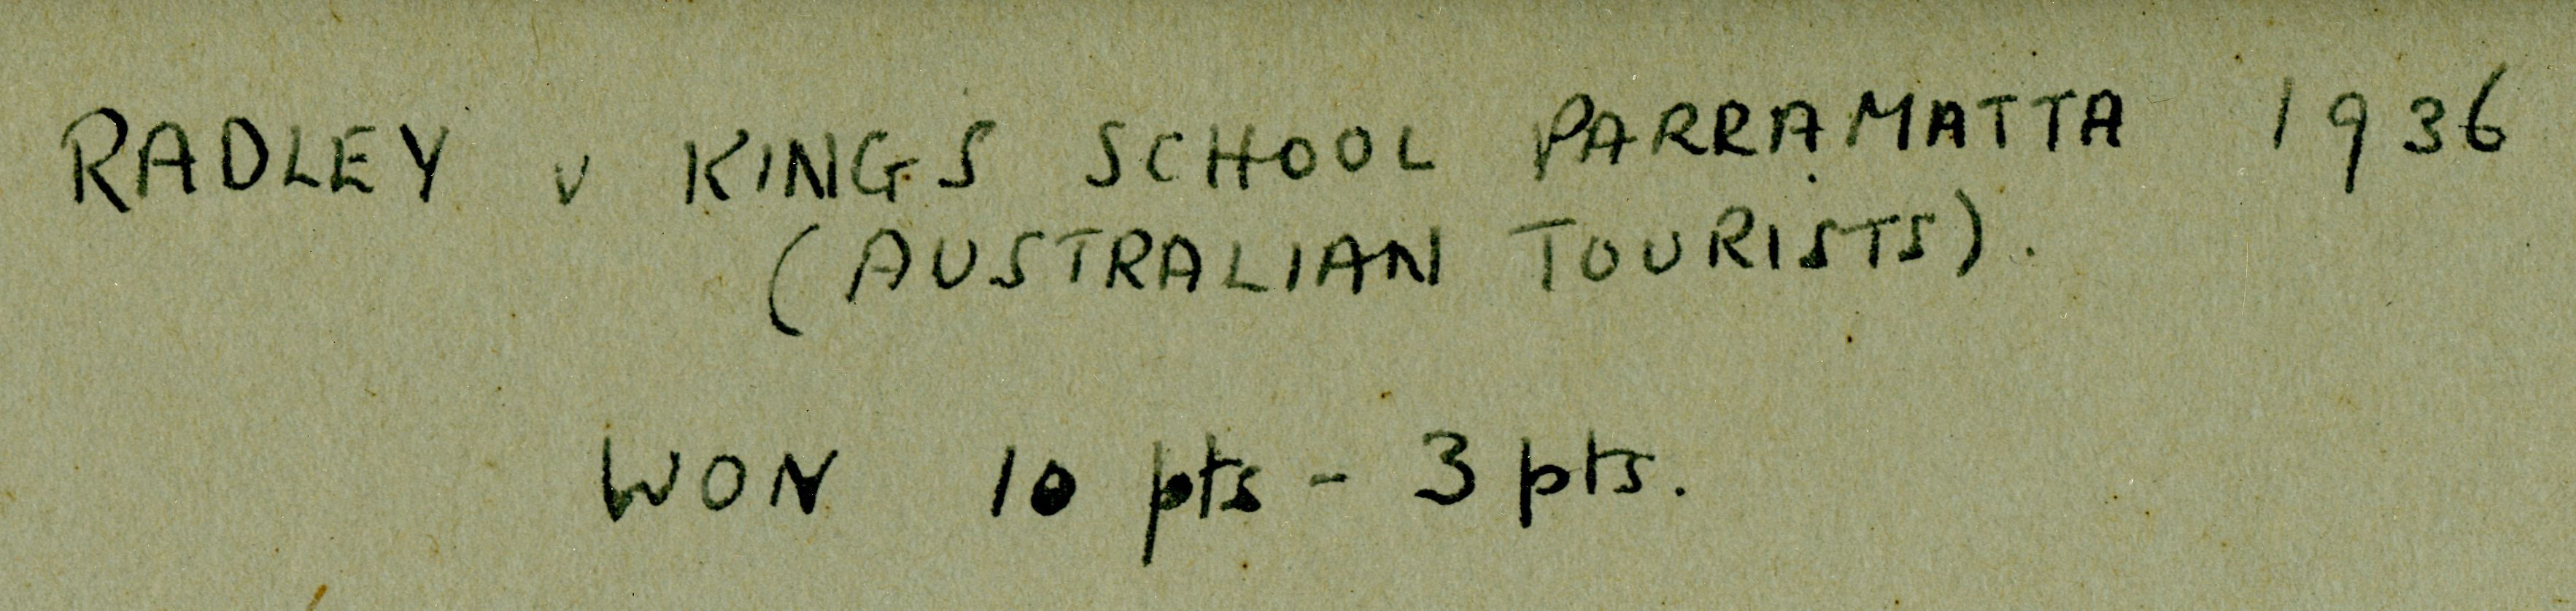 RADLEY v KINGS SCHOOL PARRAMATTA 1936
(AUSTRALIAN TOURISTS).
WON 10 pts - 3 pts.